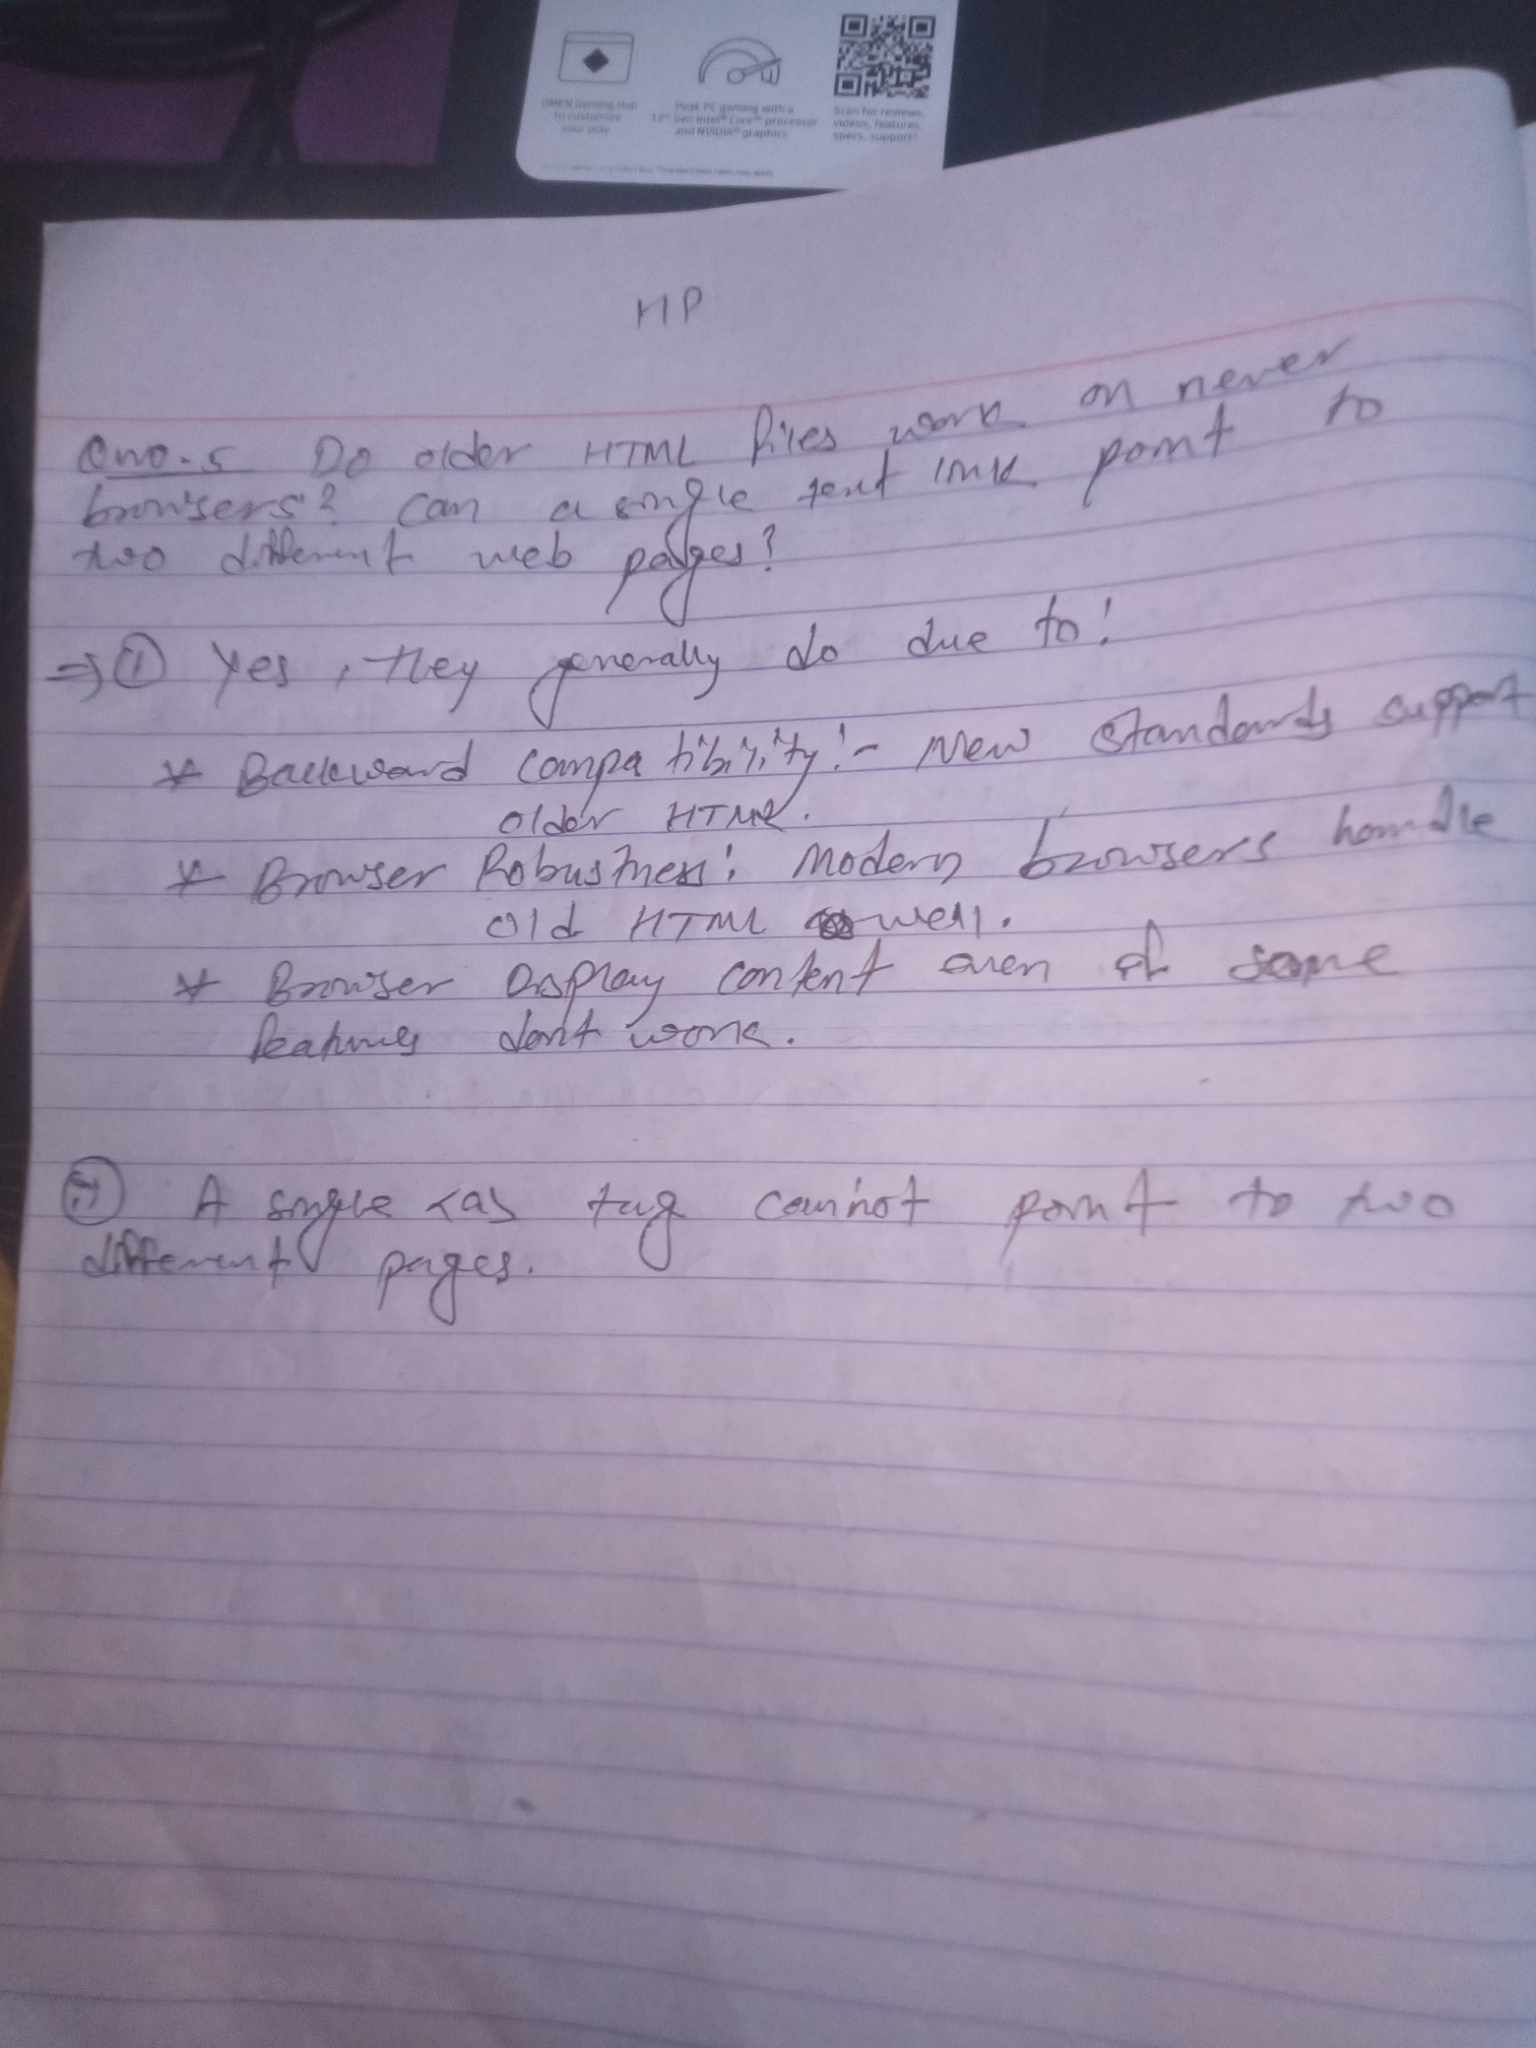 OMEN Gaming Hub
to customize
your play
Peak PC gaming with a
12th Gen Intel® Core™ processor
and NVIDIA® graphics
Scan for reviews,
videos, features,
specs, support!
HP
Qno.5 Do older HTML files work on never
browsers? Can a single text link point to
two different web pages?
⇒ ① Yes, they generally do due to:
* Backward compatibility:- New standards support
older HTML.
* Browser Robustness: Modern browsers handle
old HTML well.
* Browser Display content even if some
features dont work.
ⓘⓘ A single <a> tag cannot point to two
different pages.